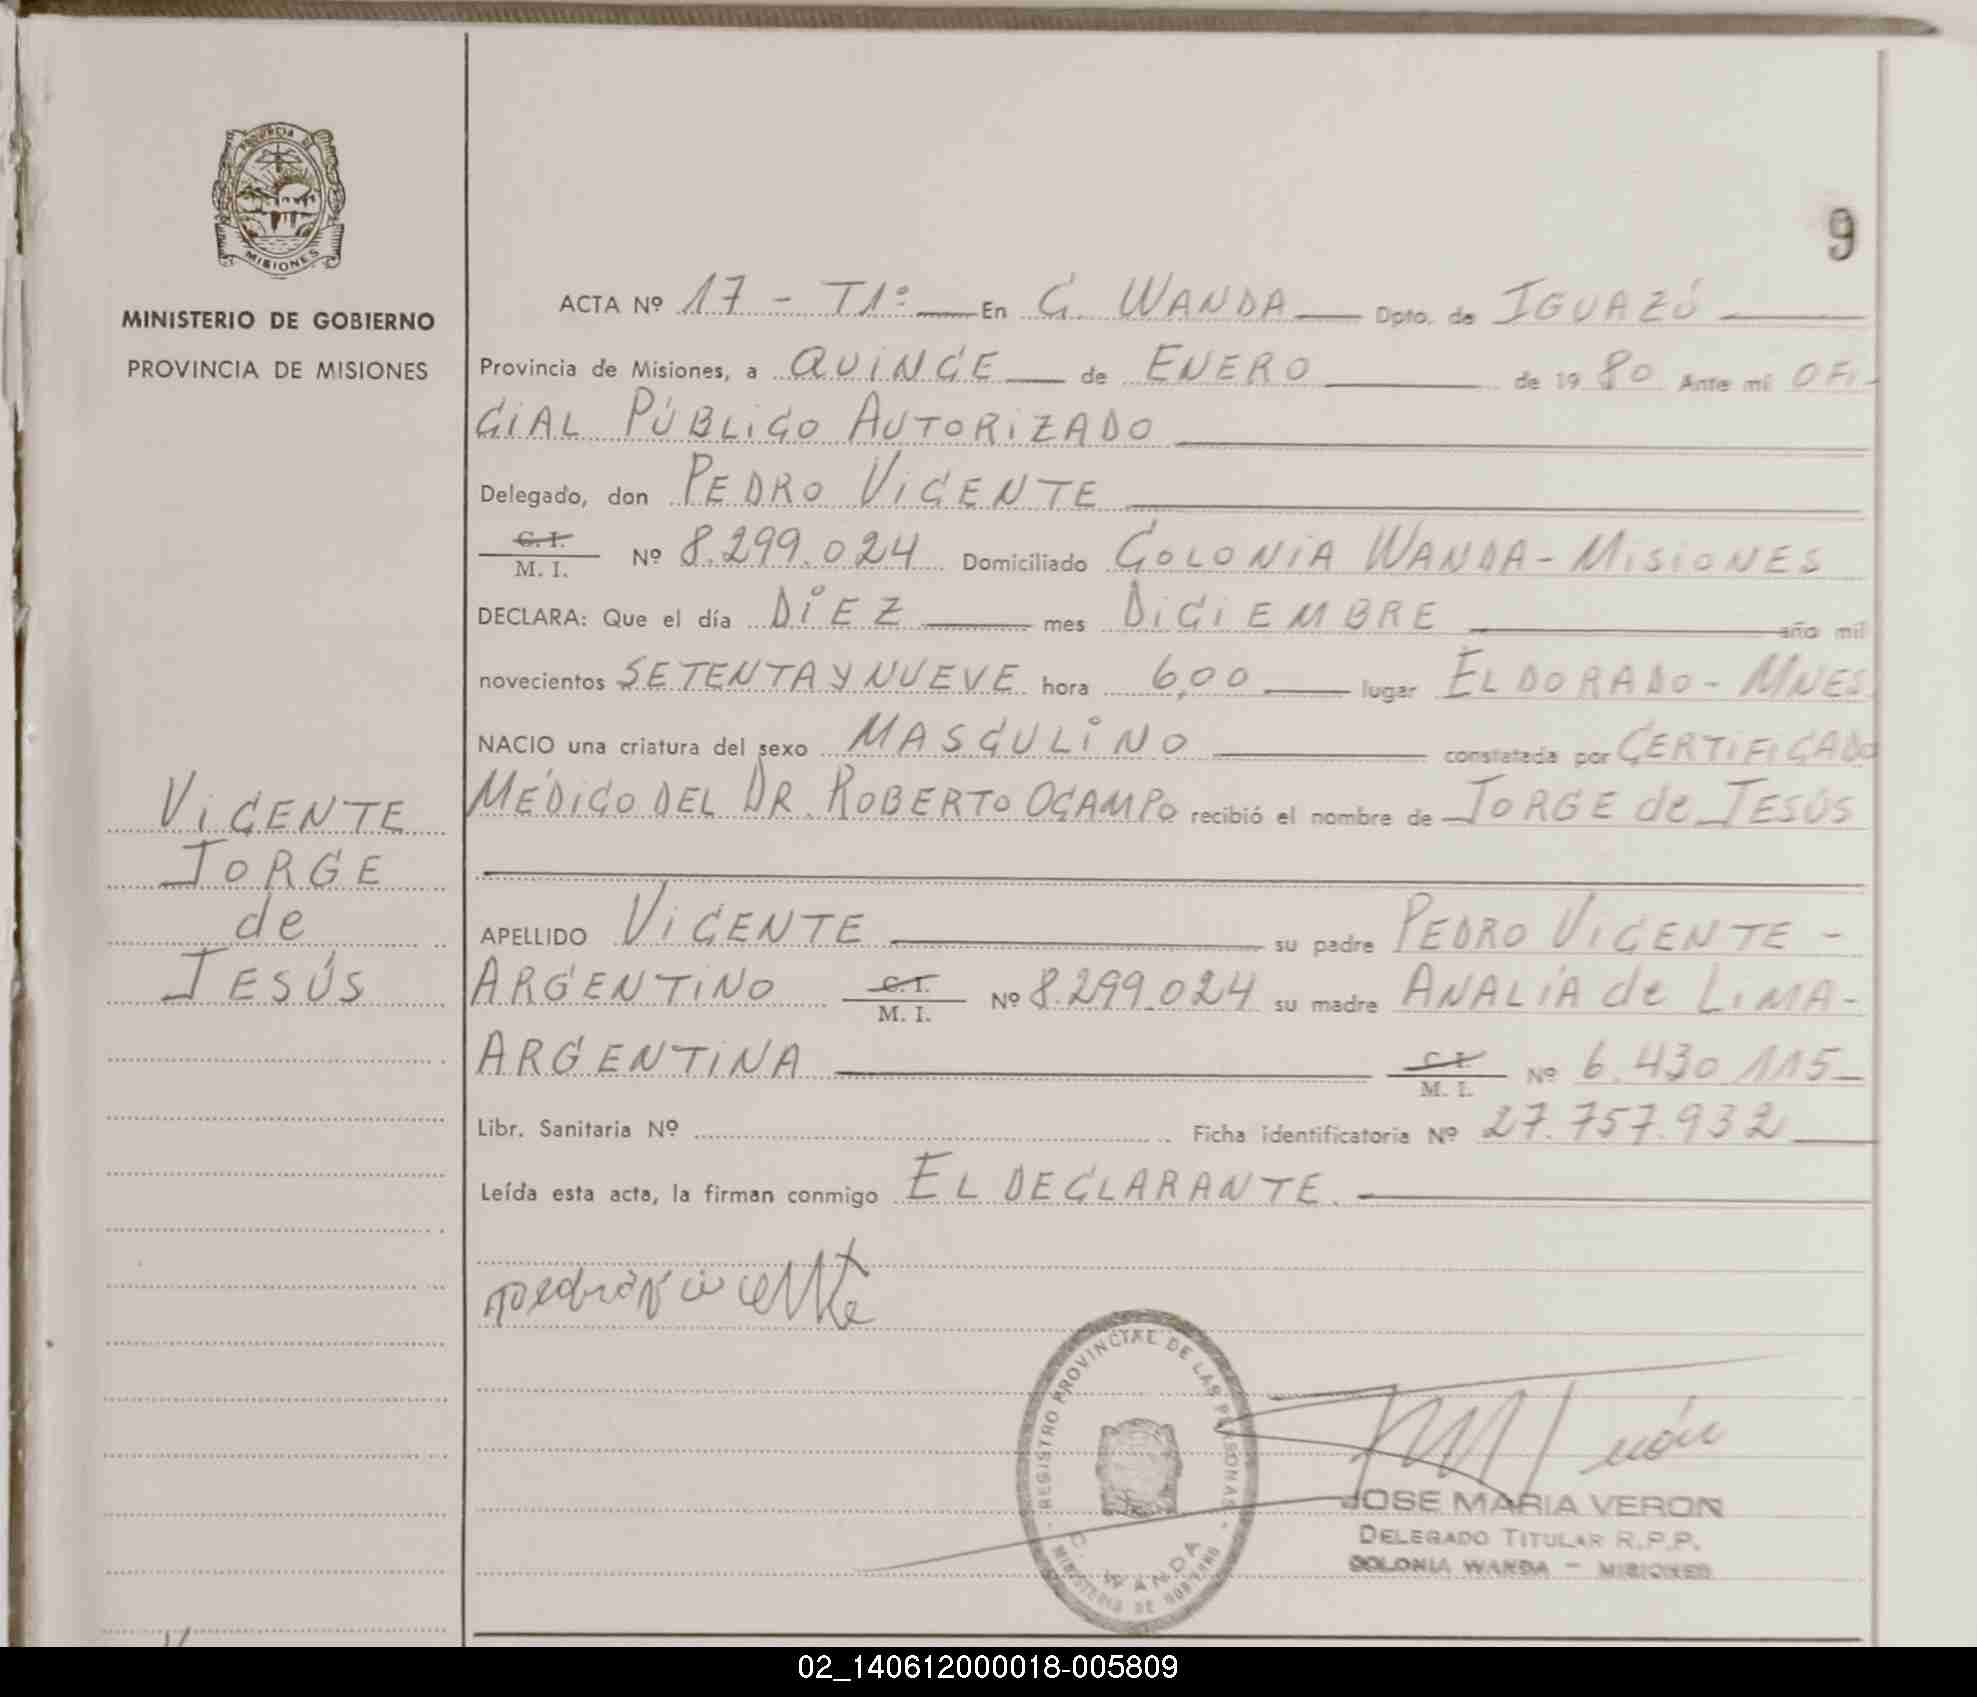 PROVINCIA DE
MISIONES
MINISTERIO DE GOBIERNO
PROVINCIA DE MISIONES
9
ACTA Nº 17 - T1º En C. WANDA Dpto. de IGUAZÚ
Provincia de Misiones, a QUINCE de ENERO de 1980 Ante mí OFI-
CIAL PÚBLICO AUTORIZADO
Delegado, don PEDRO VICENTE
C. I.
M. I. Nº 8.299.024 Domiciliado COLONIA WANDA - MISIONES
DECLARA: Que el día DIEZ mes DICIEMBRE año mil
novecientos SETENTA Y NUEVE hora 6,00 lugar ELDORADO - MNES.
NACIO una criatura del sexo MASCULINO constatada por CERTIFICADO
MÉDICO DEL DR. ROBERTO OCAMPO recibió el nombre de JORGE de JESÚS
VICENTE
JORGE
de
JESÚS
APELLIDO VICENTE su padre PEDRO VICENTE -
ARGENTINO C. I.
M. I. Nº 8.299.024 su madre ANALÍA de LIMA -
ARGENTINA C. I.
M. I. Nº 6.430.115
Libr. Sanitaria Nº Ficha identificatoria Nº 27.757.932
Leída esta acta, la firman conmigo EL DECLARANTE.
pedro vicente
REGISTRO PROVINCIAL DE LAS PERSONAS
C. WANDA
MINISTERIO DE GOBIERNO
JOSE MARIA VERON
DELEGADO TITULAR R.P.P.
COLONIA WANDA - MISIONES
02_140612000018-005809